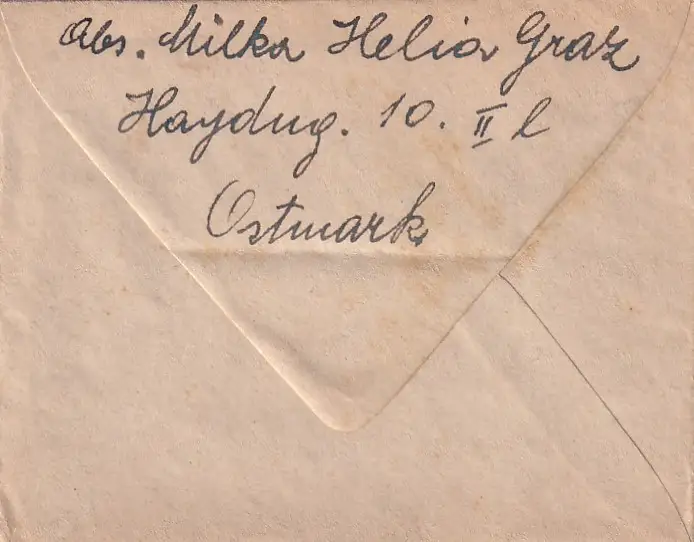 Abs. Milka Helia Graz
Haydng. 10. II l
Ostmark